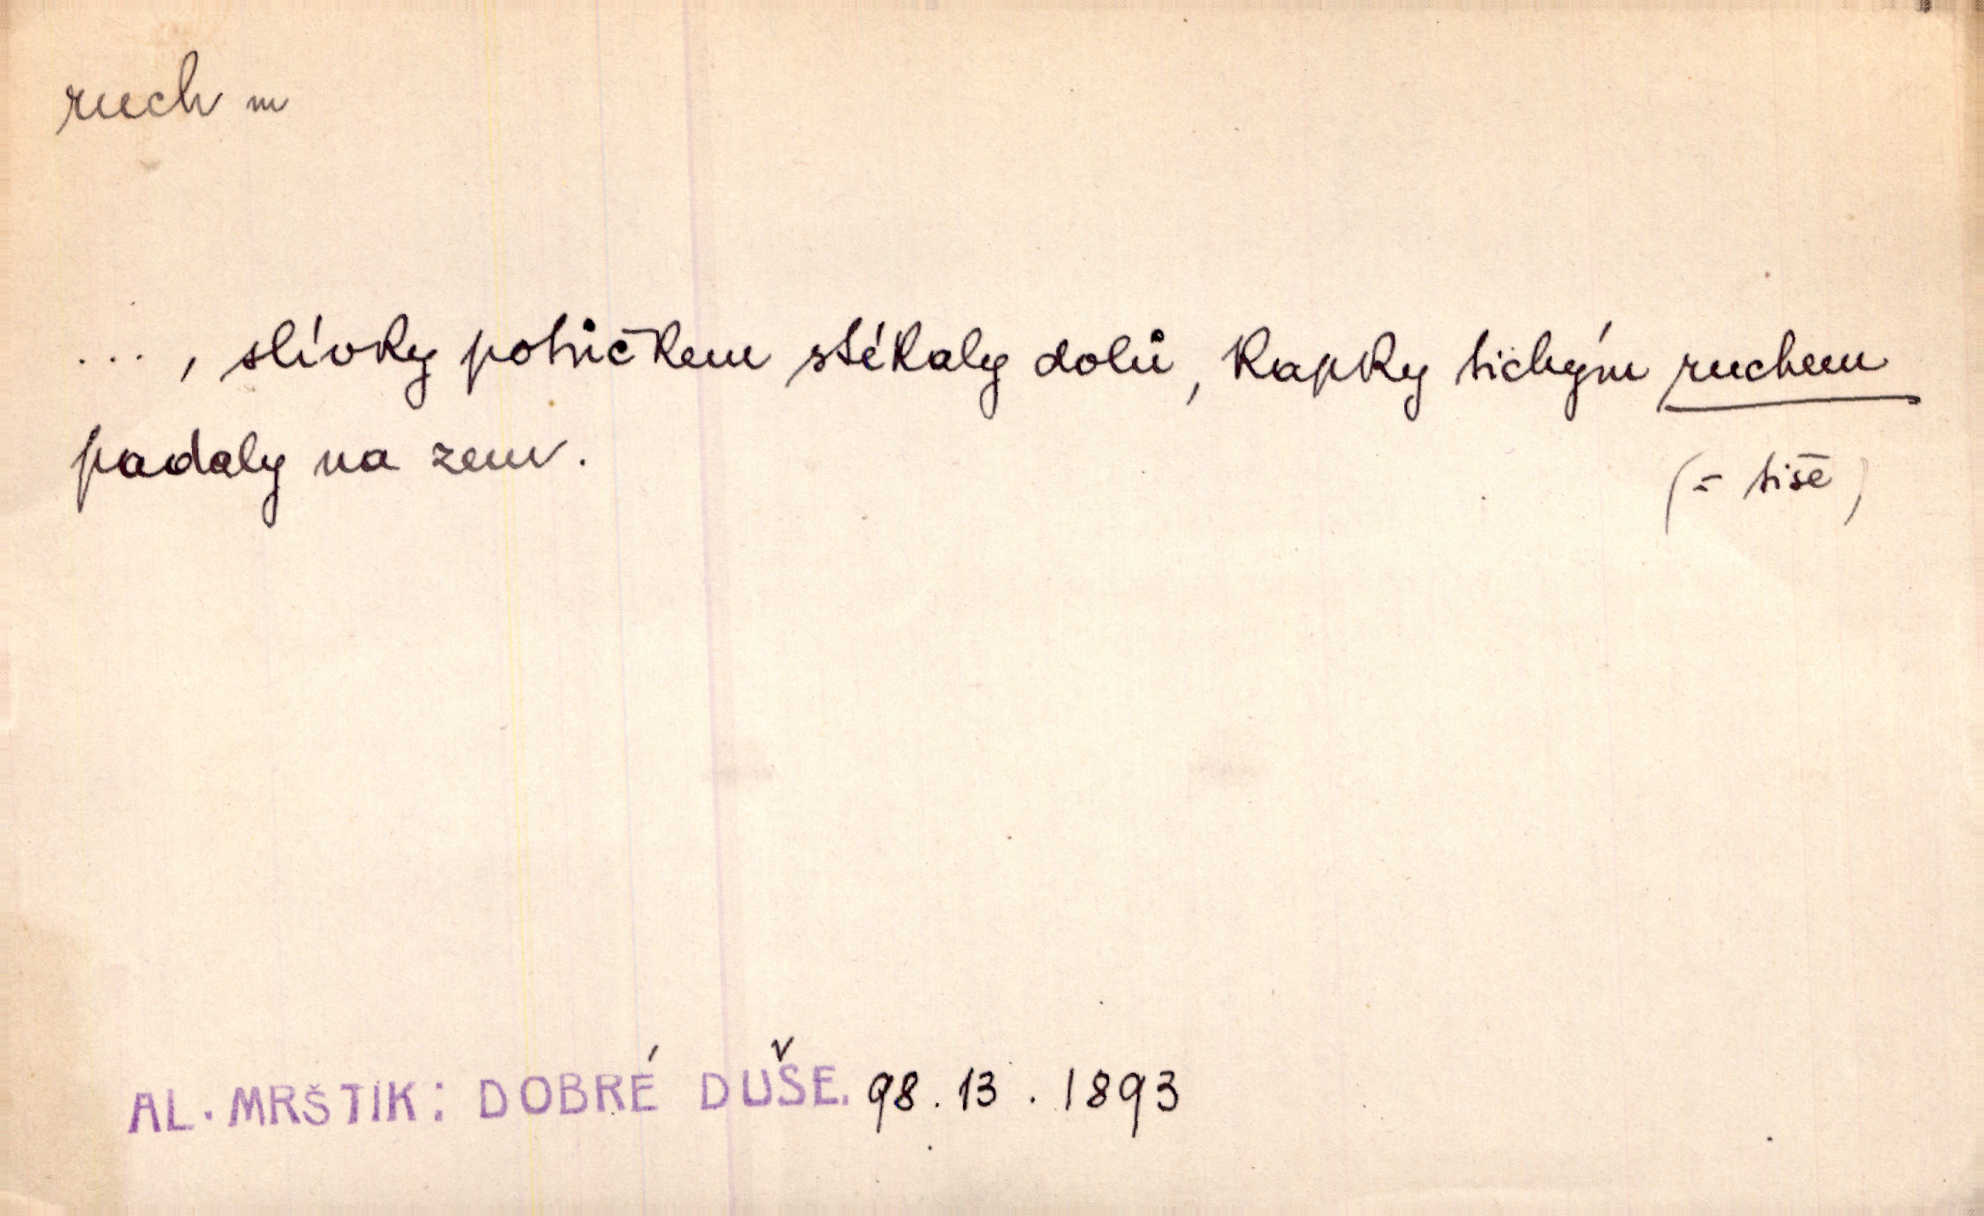 ruch m
..., slívky potůčkem stékaly dolů, kapky tichým ruchem
padaly na zem.
(= tiše)
AL. MRŠTÍK: DOBRÉ DUŠE. 98.13.1893